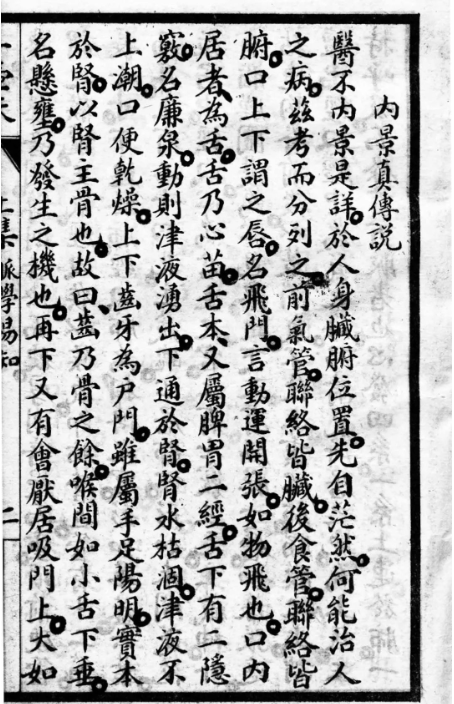 內景真傳說
醫不內景是詳。於人身臟腑位置。先自茫然。何能治人
之病。茲考而分列之。前氣管。聯絡皆臟。後食管。聯絡皆
腑。口上下謂之唇。名飛門。言動運開張。如物飛也。口內
居者。為舌。舌乃心苗。舌本。又屬脾胃二經。舌下有二隱
竅。名廉泉。動則津液湧出。下通於腎。腎水枯涸。津液不
上潮。口便乾燥。上下齒牙為戶門。雖屬手足陽明。實本
於腎。以腎主骨也。故曰。齒乃骨之餘。喉間如小舌下垂。
名懸壅。乃發生之機也。再下又有會厭。居吸門上。大如
上集
脈學易知
二